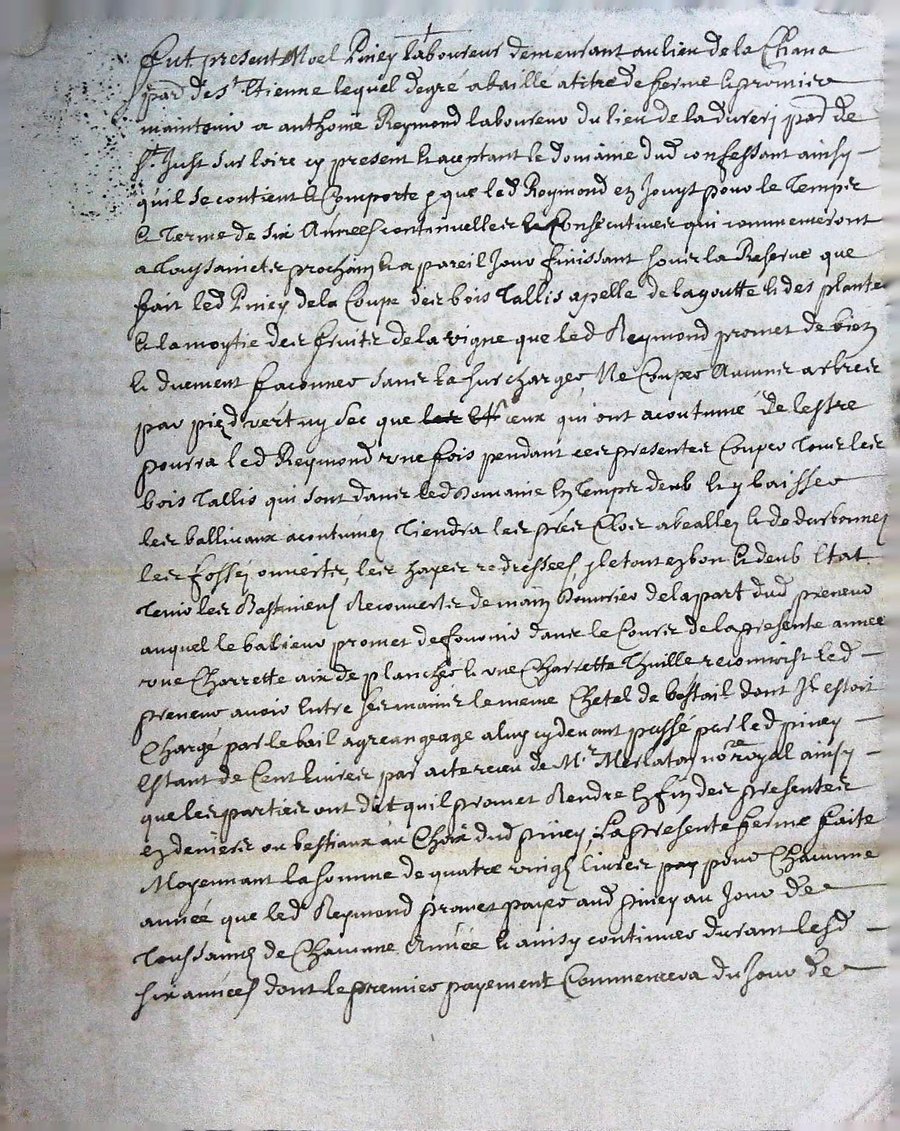 Fut present Noel Piney laboureur demeurant au lieu de la Chana
par. de st Etienne lequel degré a baillé a titre de ferme le promire
maintenir a anthoine Reymond laboureur du lieu de la dureri par. de
st Just sur loire cy present et aceptant le domainie dud confessant ainsy
qu'il se contient et comporte que led Reymond en Jouyt pour le Temps
et terme de six Années continuelles et Consecutives qui commenceront
a Toussainctz prochain et a pareil Jour finissant souz la Reserve que
fait led Piney de la Coupe des bois Tallis apelle de la goutte et des plantes
et la moytie des fruits de la vigne que led Reymond promet de bien
et duement façonner sans la surcharger Ne Couper Aucuns arbres
par pied vert ny sec que ceux qui ont acoutumé de lestre
pourra led Reymond une fois pendant ces presentes Couper Tous les
bois Tallis qui sont dans led Domaine En Temps deub et y laisser
les ballivaux acoutumez Tiendra les prés Clos abeallez et
les fossez ouverts, les hayes redressées, le tout en bon et deub Etat
Tenir les Bastimens Recouverts de main de la part dud preneur
auquel le bailleur promet de fournir dans le Cours de la presente année
une Charrette aix de planches et une Charrette reconnoist led
preneur avoir Entre ses mains le meme Chetel de bestail dont Il estoit
Chargé par le bail a grangeage a luy cy devant passé par led piney
Estant de Cent Livres par acte receu de Mr Merlaton nore royal ainsy
que les parties ont dit qu'il promet Rendre En fin des presentes
en deniers ou bestiaux au Choix dud piney, La presente ferme faite
Moyennant la somme de quatre vingtz livres pour Chacune
année que led Reymond promet payer aud piney au Jour de
Toussaincts de Chacune Année et ainsy continuer durant lesd
six années dont le premier payement Commencera du Jour de